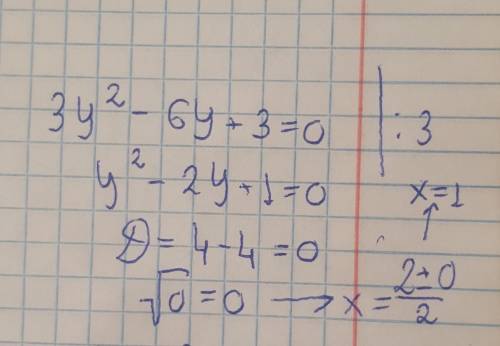 3y² - 6y + 3 = 0 | : 3
y² - 2y + 1 = 0
D = 4 - 4 = 0
√0 = 0 → x = (2 ± 0)/2
↑
x = 1